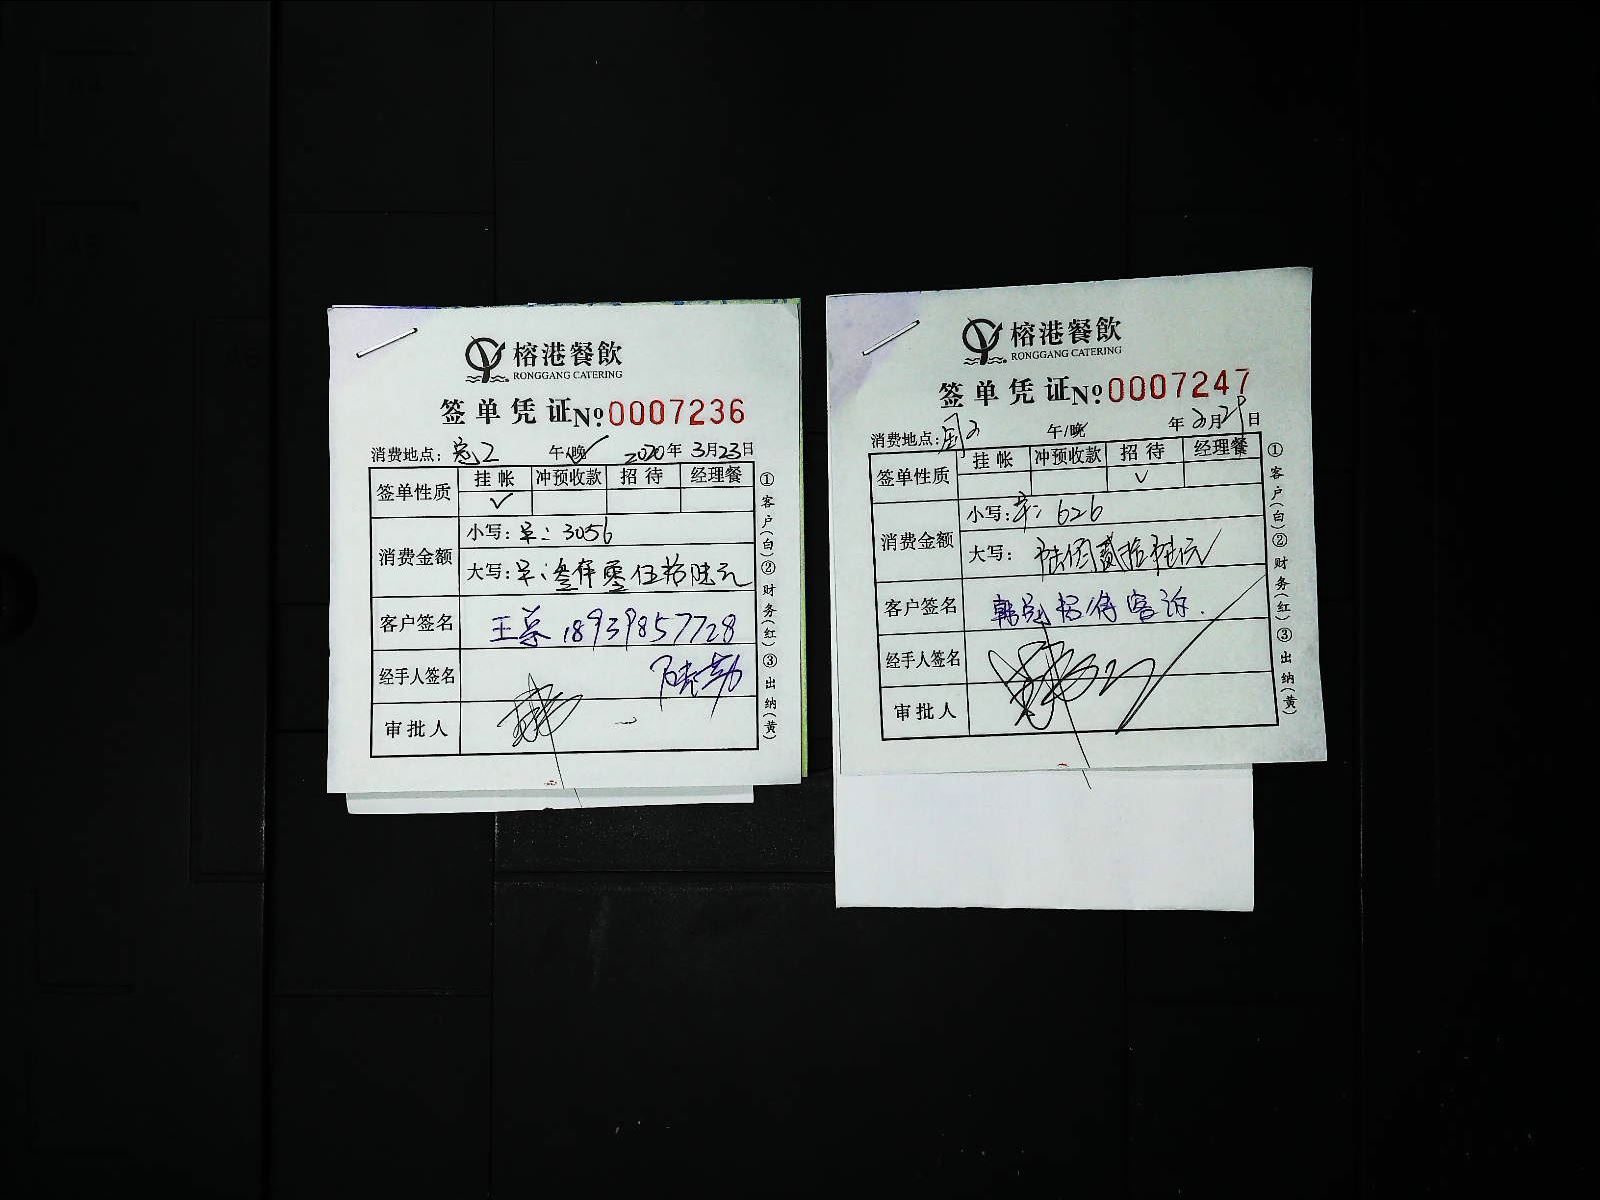 榕港餐飲
RONGGANG CATERING
签单凭证 No 0007236
消费地点: 午/晚 2020年 3月23日
签单性质 挂帐 冲预收款 招待 经理餐
✓
消费金额
小写: 3056
大写: 叁仟零伍拾陆元
客户签名 王总 18939857728
经手人签名
审批人
①客户(白)②财务(红)③出纳(黄)
榕港餐飲
RONGGANG CATERING
签单凭证 No 0007247
消费地点: 午/晚 年 3月29日
签单性质 挂帐 冲预收款 招待 经理餐
✓
消费金额
小写: 626
大写: 陆佰贰拾陆元
客户签名 招待客诉.
经手人签名
审批人
①客户(白)②财务(红)③出纳(黄)